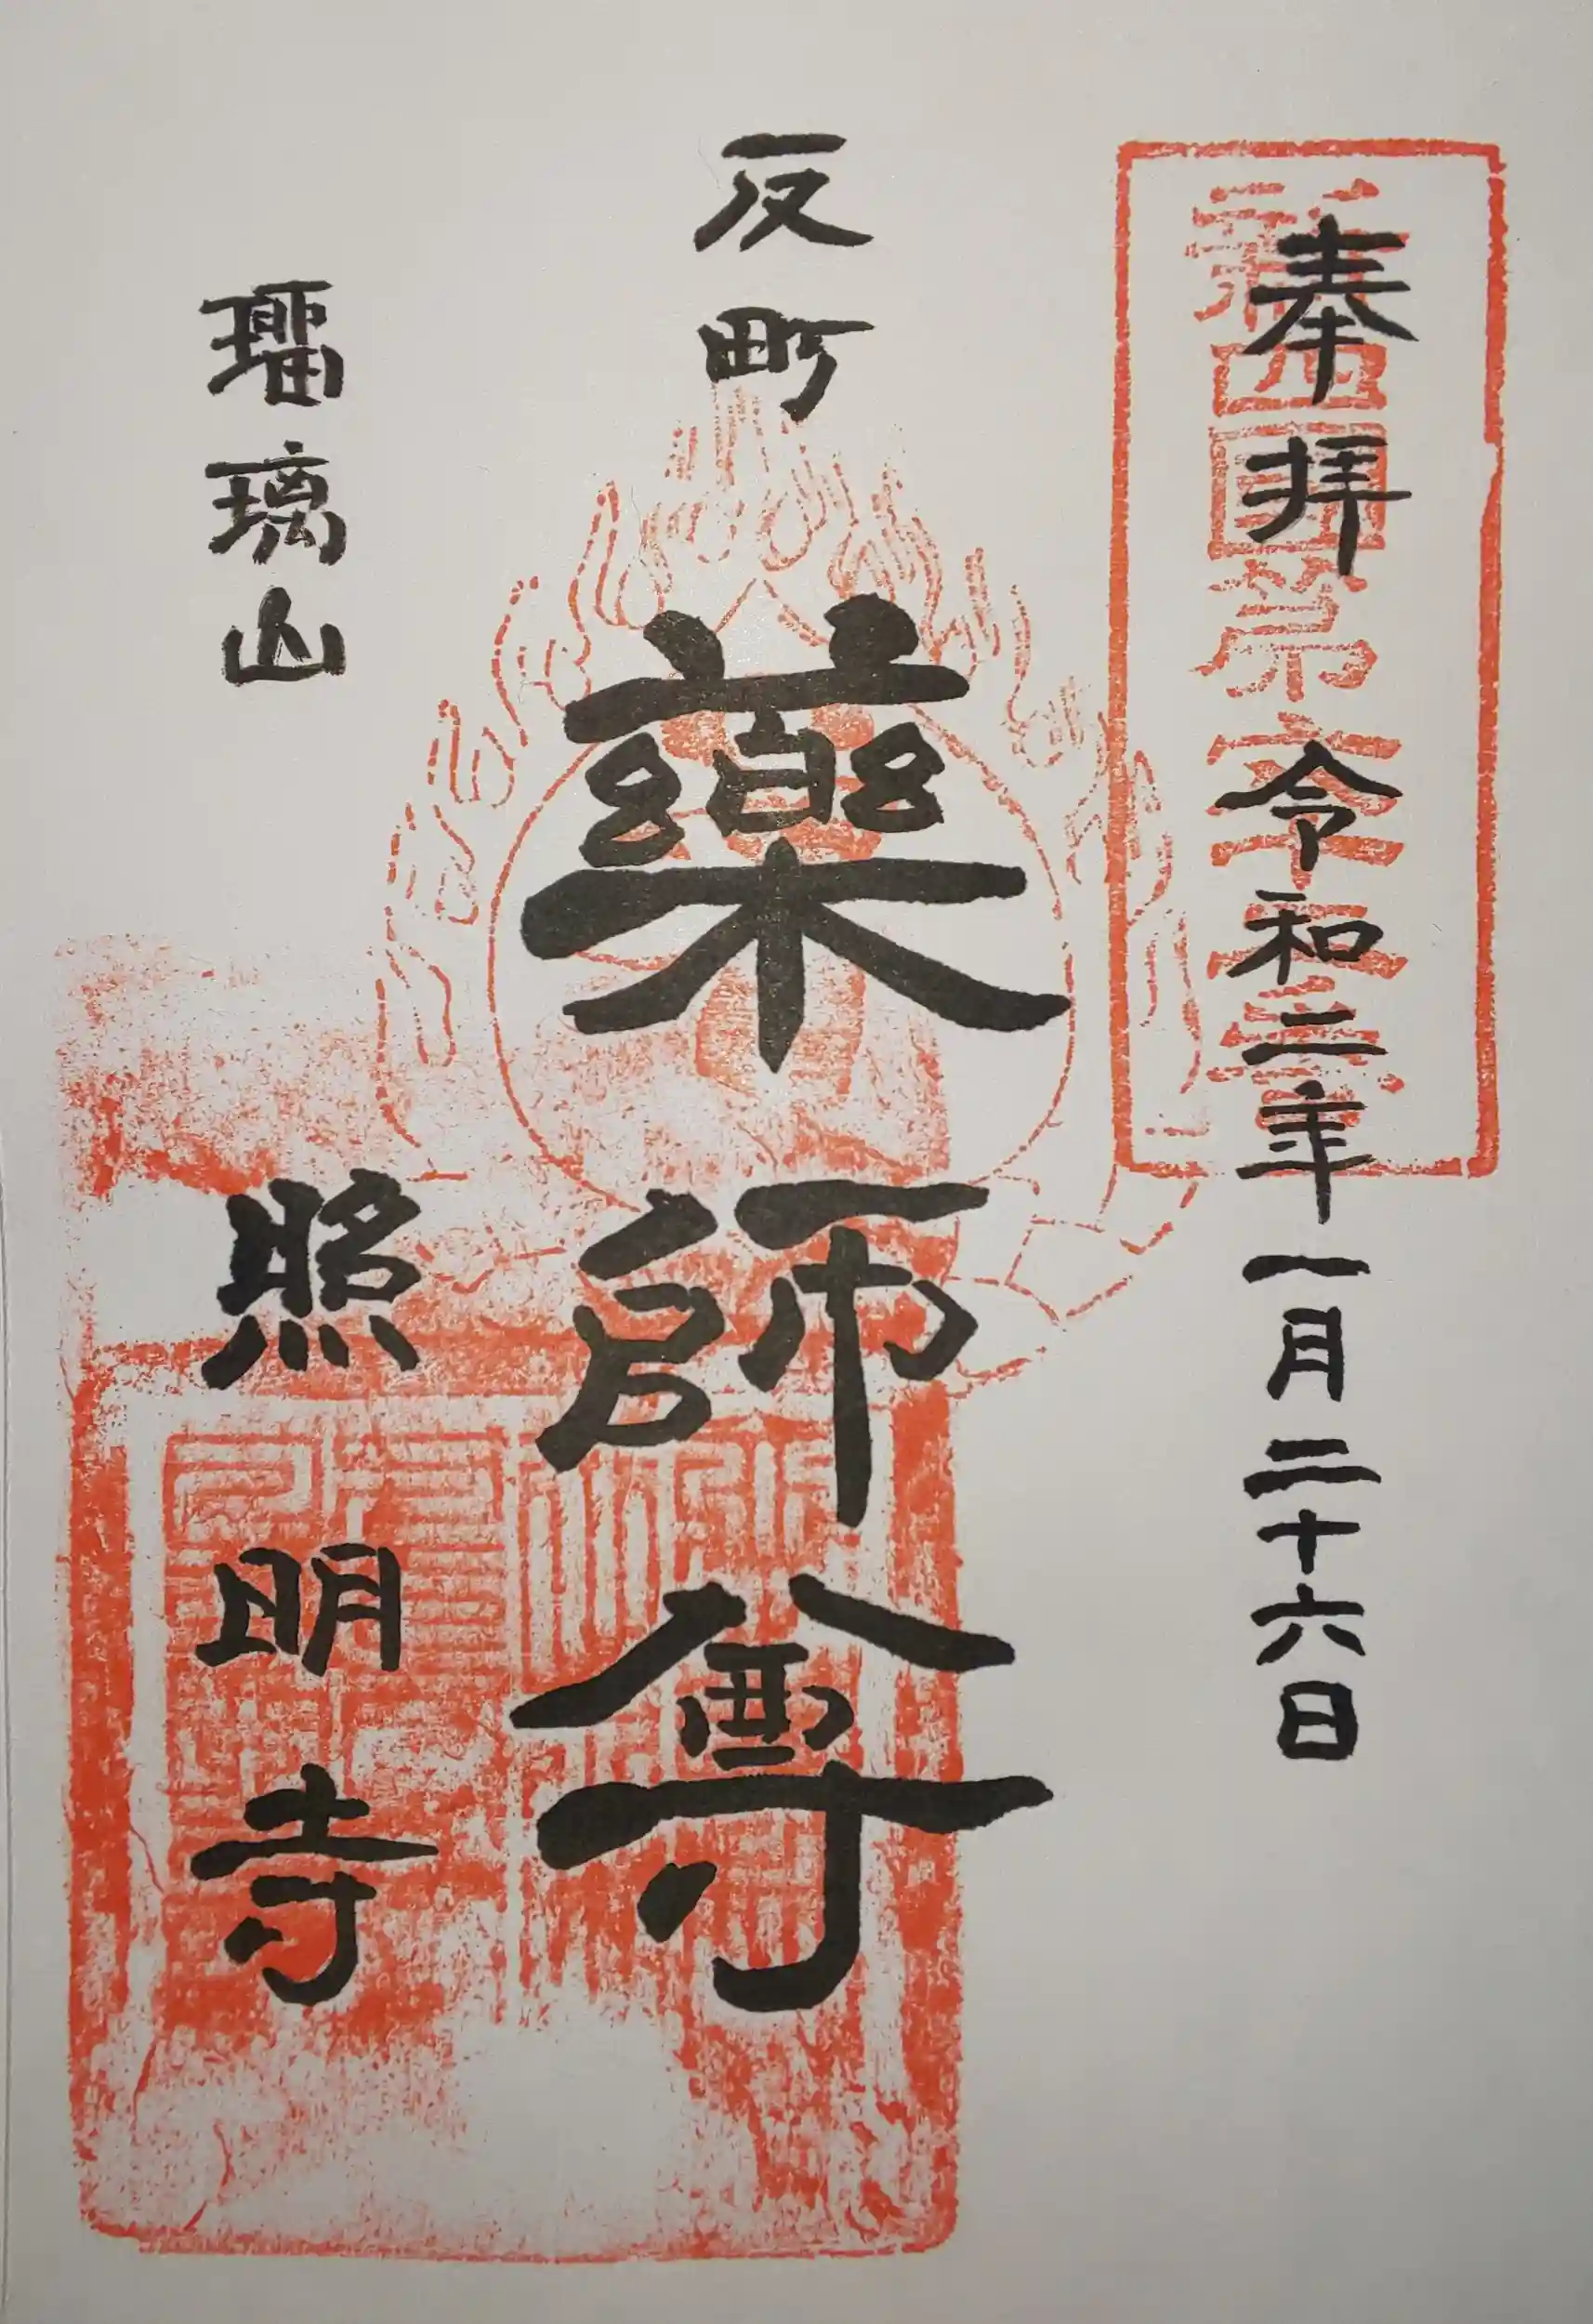 奉拝 令和二年一月二十六日
反町 薬師尊
瑠璃山 照明寺